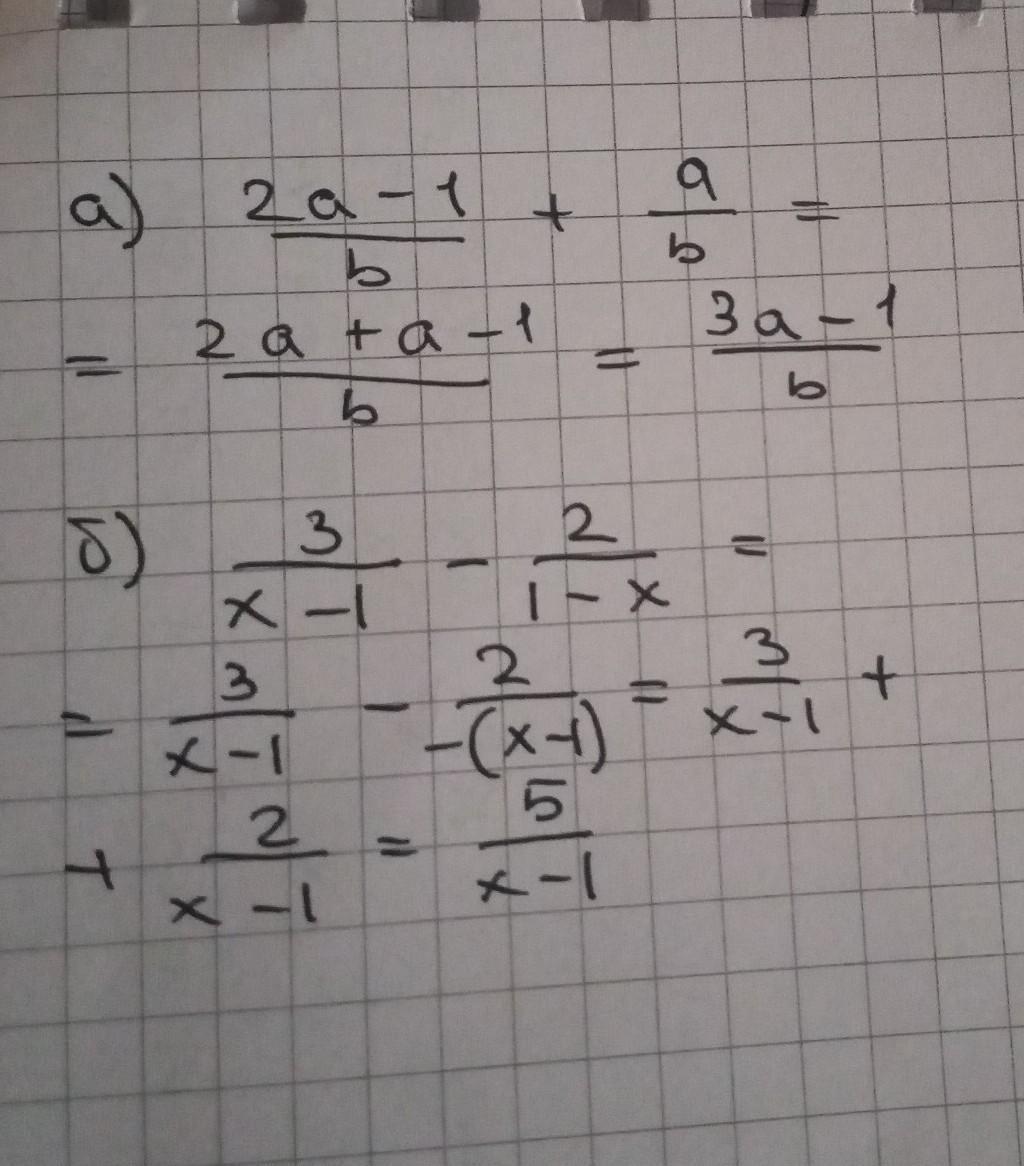 а) (2a - 1)/b + a/b =
= (2a + a - 1)/b = (3a - 1)/b
б) 3/(x - 1) - 2/(1 - x) =
= 3/(x - 1) - 2/(-(x - 1)) = 3/(x - 1) +
+ 2/(x - 1) = 5/(x - 1)